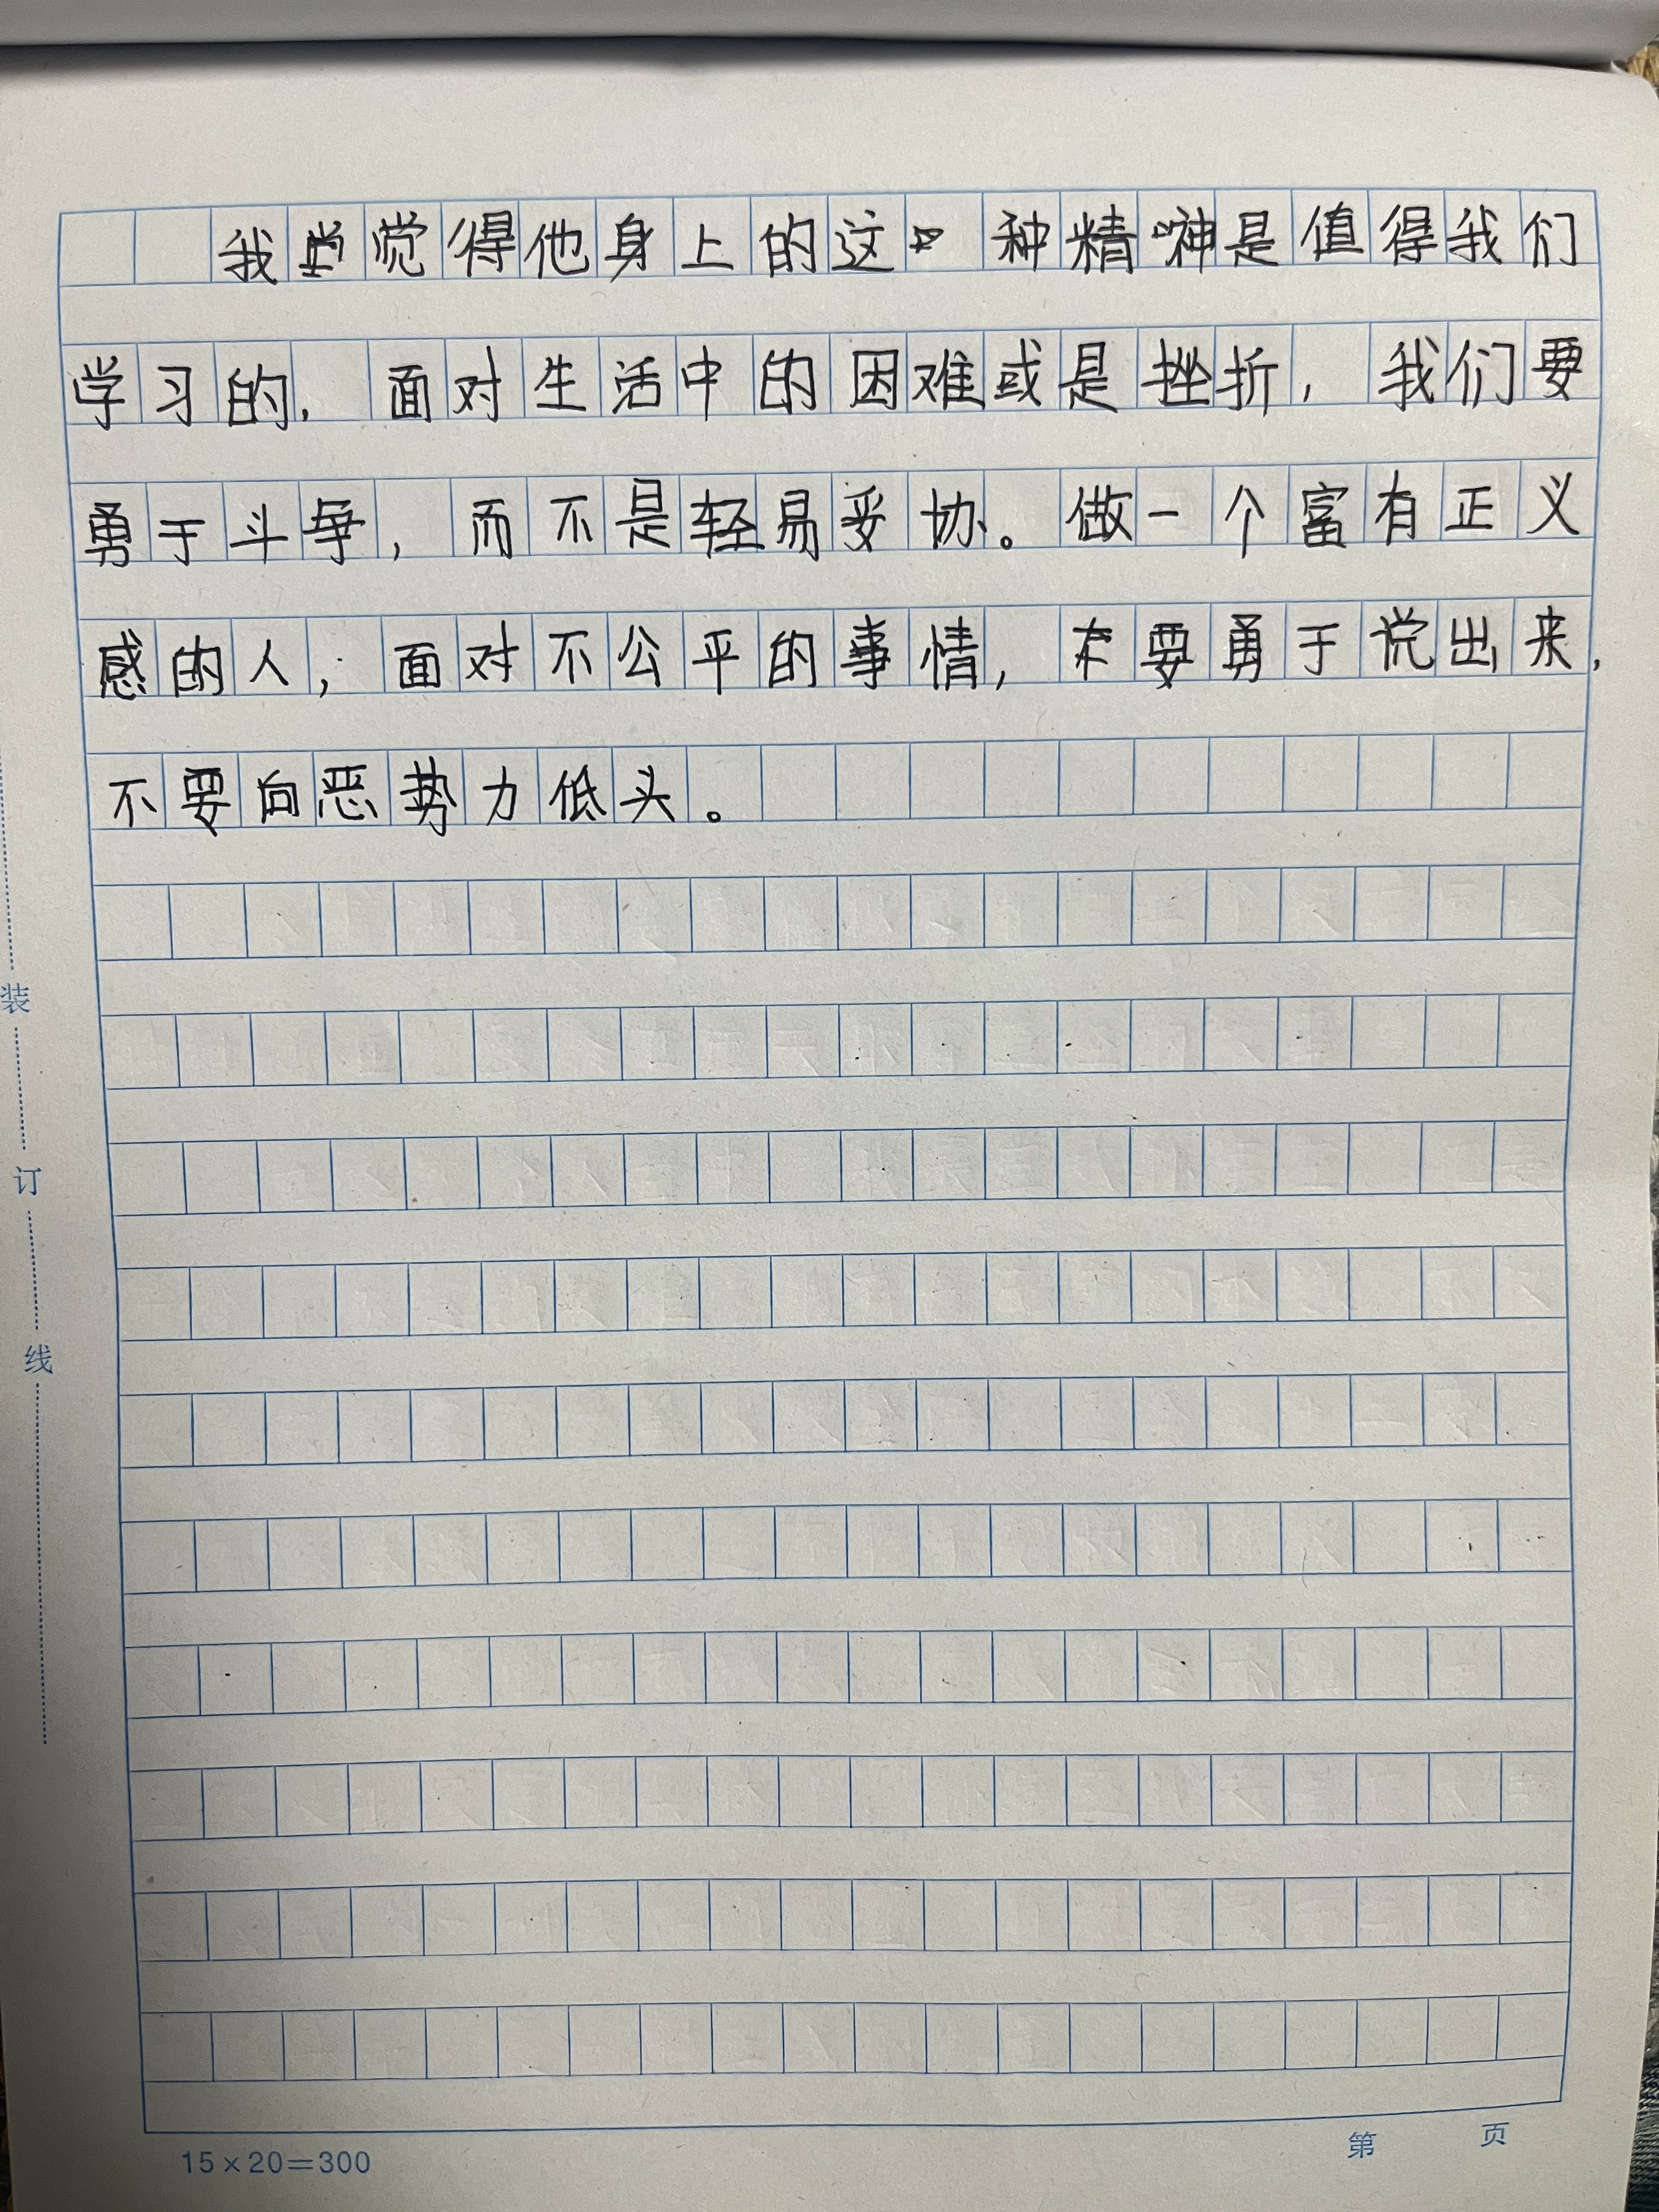 我觉得他身上的这种精神是值得我们
学习的,面对生活中的困难或是挫折,我们要
勇于斗争,而不是轻易妥协。做一个富有正义
感的人,面对不公平的事情,要勇于说出来,
不要向恶势力低头。
装
订
线
15×20=300
第 页